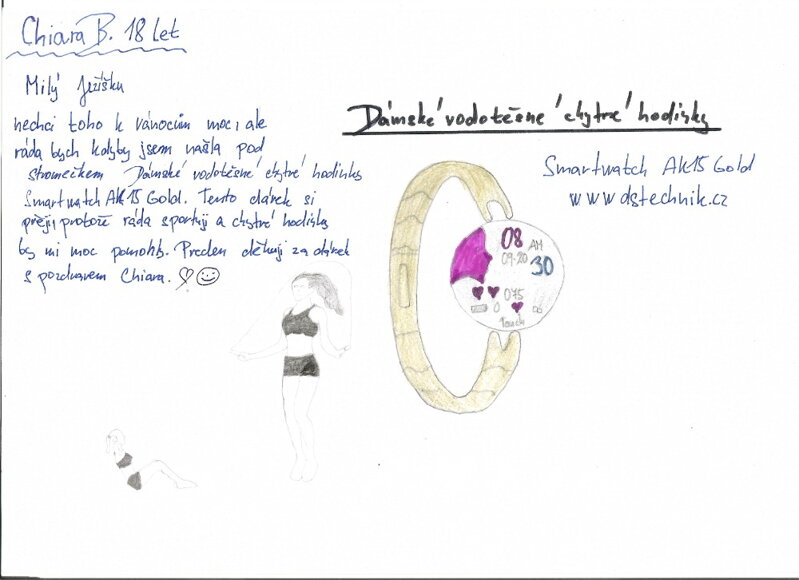 Chiara B. 18 let
Milý Ježíšku
nechci toho k vánocům moc, ale
ráda bych kdyby jsem našla pod
stromečkem Dámské vodotěšné chytré hodinky
Smartwatch AK15 Gold. Tento dárek si
přeji protože ráda sportuji a chytré hodinky
by mi moc pomohly. Předem děkuji za dárek
s pozdravem Chiara.
Dámské vodotěšné chytré hodinky
Smartwatch AK15 Gold
www.dstechnik.cz
08 AM
09-20 30
075
0
Touch